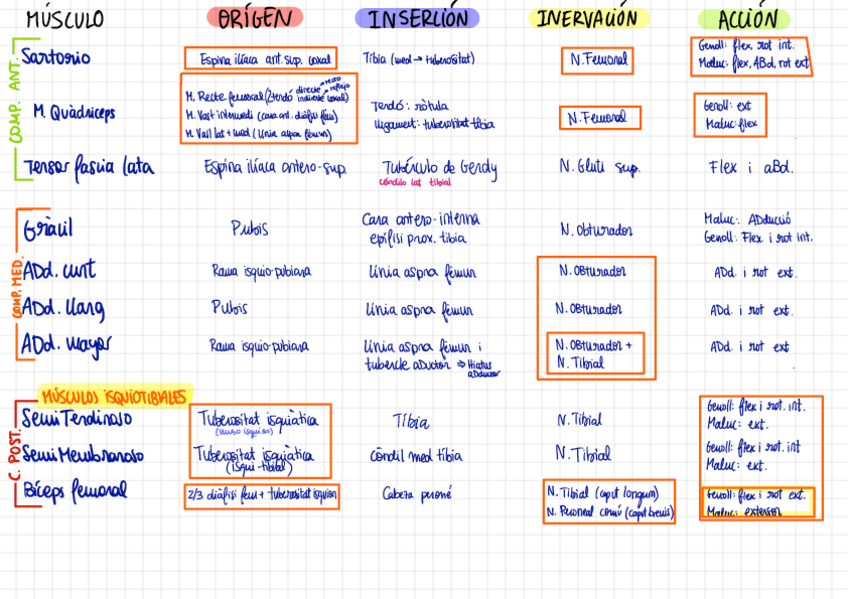 MÚSCULO ORÍGEN INSERCIÓN INERVACIÓN ACCIÓN
COMP. ANT.
Sartorio Espina ilíaca ant. sup. coxal Tíbia (med → tuberositat) N. Femoral Genoll: flex, rot int.
Maluc: flex, ABd, rot ext
M. Quàdriceps M. Recte femoral (2 tendó directe → recto indirecte → reflejo coxal) Tendó: ròtula N. Femoral Genoll: ext
M. Vast intermedi (cara ant. diàfisi fèm) lligament: tuberositat tíbia Maluc: flex
M. Vast lat + med (línia aspra fèmur)
Tensor fascia lata Espina ilíaca antero-sup. Tubérculo de Gerdy N. Gluti sup. Flex i aBd.
còndilo lat tibial
COMP. MED.
Gràcil Pubis Cara antero-interna N. Obturador Maluc: ADducció
epífisi prox. tibia Genoll: Flex i rot int.
ADd. curt Rama isquio-pubiana Línia aspra fèmur N. Obturador ADd i rot ext.
ADd. Llarg Pubis Línia aspra fèmur N. Obturador ADd. i rot ext.
ADd. Mayor Rama isquio-pubiana Línia aspra fèmur i N. Obturador + ADd i rot ext
tubercle aDuctor ⇒ Hiatus aDductor N. Tibial
MÚSCULOS ISQUIOTIBIALES
C. POST.
SemiTendinoso Tuberositat isquiàtica Tíbia N. Tibial Genoll: flex i rot. int.
Maluc: ext.
SemiMembranoso Tuberositat isquiàtica Còndil med tíbia N. Tibial Genoll: flex i rot. int
(isqui-tibial) Maluc: ext.
Bíceps femoral 2/3 diàfisi fem + tuberositat isquion Cabeza peroné N. Tibial (caput longum) Genoll: flex i rot ext.
N. Peroneal comú (caput breuis) Maluc: extensor